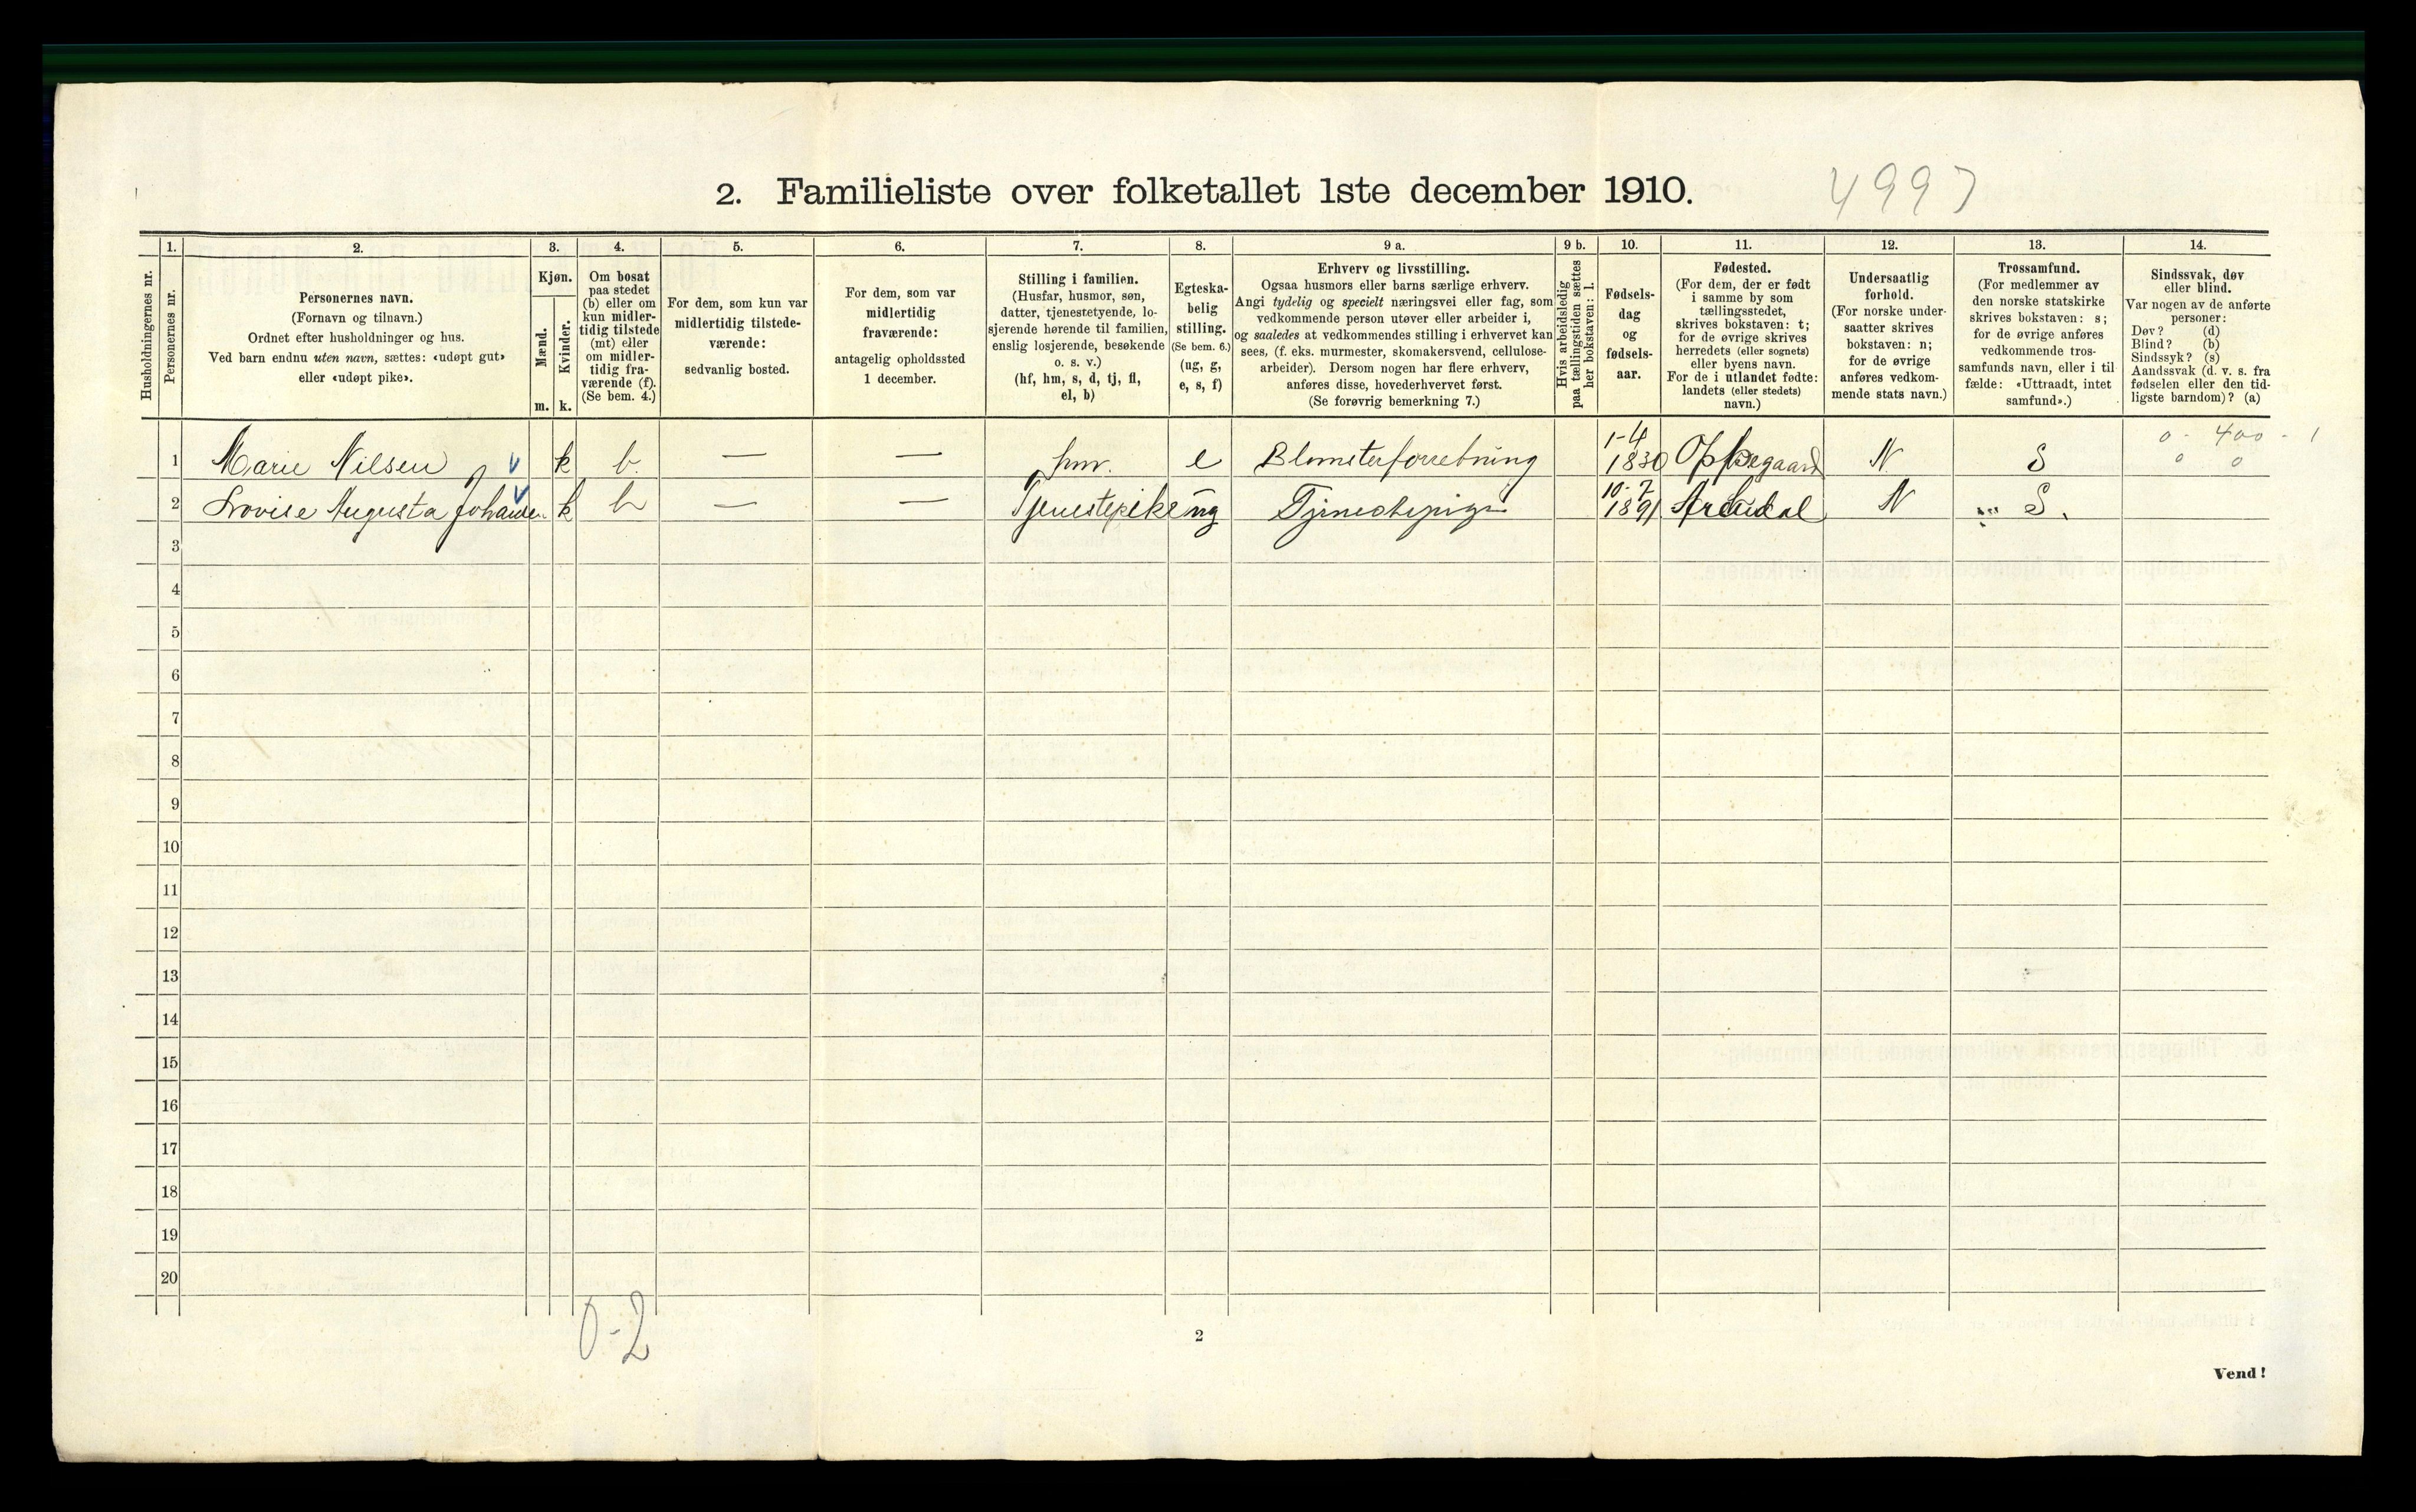 2. Familieliste over folketallet 1ste december 1910.
4997
Husholdningernes nr.
1.
Personernes nr.
2.
Personernes navn.
(Fornavn og tilnavn.)
Ordnet efter husholdninger og hus.
Ved barn endnu uten navn, sættes: «udøpt gut»
eller «udøpt pike».
3.
Kjøn.
Mænd.
Kvinder.
m. k.
4.
Om bosat
paa stedet
(b) eller om
kun midler-
tidig tilstede
(mt) eller
om midler-
tidig fra-
værende (f).
(Se bem. 4.)
5.
For dem, som kun var
midlertidig tilstede-
værende:
sedvanlig bosted.
6.
For dem, som var
midlertidig
fraværende:
antagelig opholdssted
1 december.
7.
Stilling i familien.
(Husfar, husmor, søn,
datter, tjenestetyende, lo-
sjerende hørende til familien,
enslig losjerende, besøkende
o. s. v.)
(hf, hm, s, d, tj, fl,
el, b)
8.
Egteska-
belig
stilling.
(Se bem. 6.)
(ug, g,
e, s, f)
9 a.
Erhverv og livsstilling.
Ogsaa husmors eller barns særlige erhverv.
Angi tydelig og specielt næringsvei eller fag, som
vedkommende person utøver eller arbeider i,
og saaledes at vedkommendes stilling i erhvervet kan
sees, (f. eks. murmester, skomakersvend, cellulose-
arbeider). Dersom nogen har flere erhverv,
anføres disse, hovederhvervet først.
(Se forøvrig bemerkning 7.)
9 b.
Hvis arbeidsledig
paa tællingstiden sættes
her bokstaven: l.
10.
Fødsels-
dag
og
fødsels-
aar.
11.
Fødested.
(For dem, der er født
i samme by som
tællingsstedet,
skrives bokstaven: t;
for de øvrige skrives
herredets (eller sognets)
eller byens navn.
For de i utlandet fødte:
landets (eller stedets)
navn.)
12.
Undersaatlig
forhold.
(For norske under-
saatter skrives
bokstaven: n;
for de øvrige
anføres vedkom-
mende stats navn.)
13.
Trossamfund.
(For medlemmer av
den norske statskirke
skrives bokstaven: s;
for de øvrige anføres
vedkommende tros-
samfunds navn, eller i til-
fælde: «Uttraadt, intet
samfund».)
14.
Sindssvak, døv
eller blind.
Var nogen av de anførte
personer:
Døv? (d)
Blind? (b)
Sindssyk? (s)
Aandssvak (d. v. s. fra
fødselen eller den tid-
ligste barndom)? (a)
1 Marie Nilsen k b. — — hm. e Blomsterforretning 1-4 1830 Oppegaard N S 0 - 400 - 1
0 0
2 Lovise Augusta Johansen k b — — Tjenestepike ug Tjenestepige 10-7 1891 Arendal N S.
3
4
5
6
7
8
9
10
11
12
13
14
15
16
17
18
19
20
0-2
2
Vend!